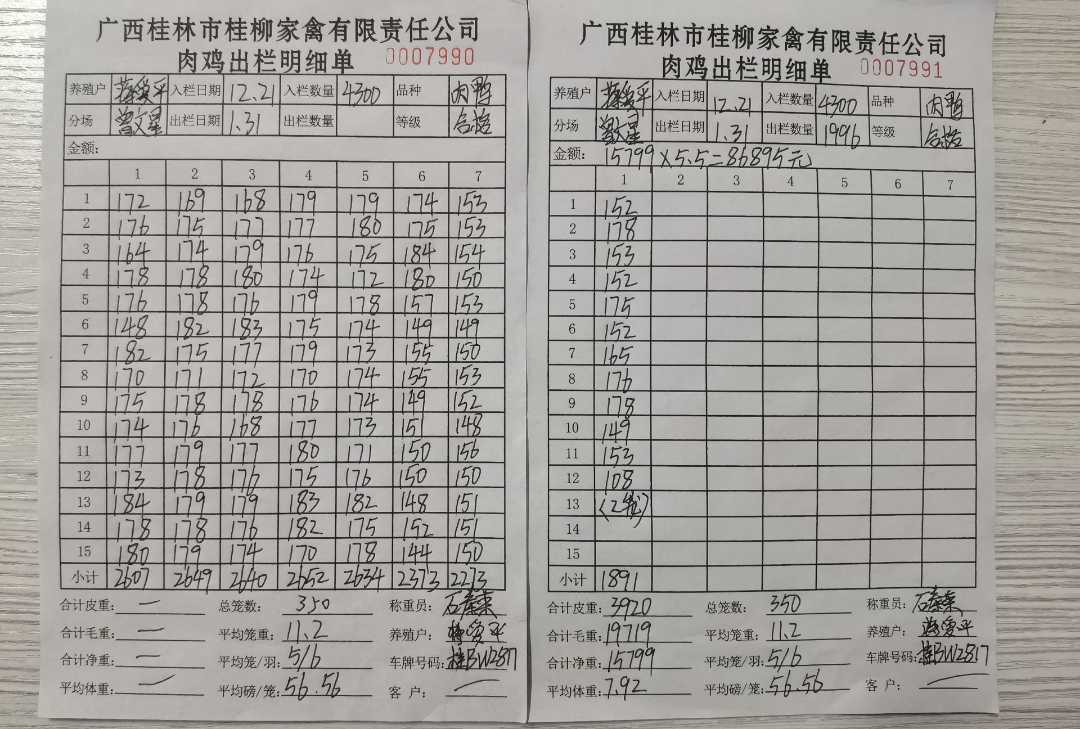 广西桂林市桂柳家禽有限责任公司
肉鸡出栏明细单 0007990
养殖户 蒋爱平 入栏日期 12.21 入栏数量 4300 品种 肉鸭
分场 曾文星 出栏日期 1.31 出栏数量 等级 合格
金额:
1 2 3 4 5 6 7
1 172 169 168 179 179 174 153
2 176 175 177 177 180 175 153
3 164 174 179 176 175 184 154
4 178 178 180 174 172 180 150
5 176 178 176 179 178 157 153
6 148 182 183 175 174 149 149
7 182 175 177 179 173 155 150
8 170 171 172 170 174 155 153
9 175 178 178 176 174 149 152
10 174 176 168 177 173 151 148
11 177 179 177 180 171 150 156
12 173 178 176 175 176 150 150
13 184 179 179 183 182 148 151
14 178 178 176 182 175 152 151
15 180 179 174 170 178 144 150
小计 2607 2649 2640 2652 2634 2373 2273
合计皮重: — 总笼数: 350 称重员:
合计毛重: — 平均笼重: 11.2 养殖户: 蒋爱平
合计净重: — 平均笼/羽: 5/6 车牌号码: 桂BW2817
平均体重: — 平均磅/笼: 56.56 客户: —
广西桂林市桂柳家禽有限责任公司
肉鸡出栏明细单 0007991
养殖户 蒋爱平 入栏日期 12.21 入栏数量 4300 品种 肉鸭
分场 曾文星 出栏日期 1.31 出栏数量 1996 等级 合格
金额: 15799×5.5=86895元
1 2 3 4 5 6 7
1 152
2 178
3 153
4 152
5 175
6 152
7 165
8 176
9 178
10 149
11 153
12 108
13 (2笼)
14
15
小计 1891
合计皮重: 3920 总笼数: 350 称重员:
合计毛重: 19719 平均笼重: 11.2 养殖户: 蒋爱平
合计净重: 15799 平均笼/羽: 5/6 车牌号码: 桂BW2817
平均体重: 7.92 平均磅/笼: 56.56 客户: —